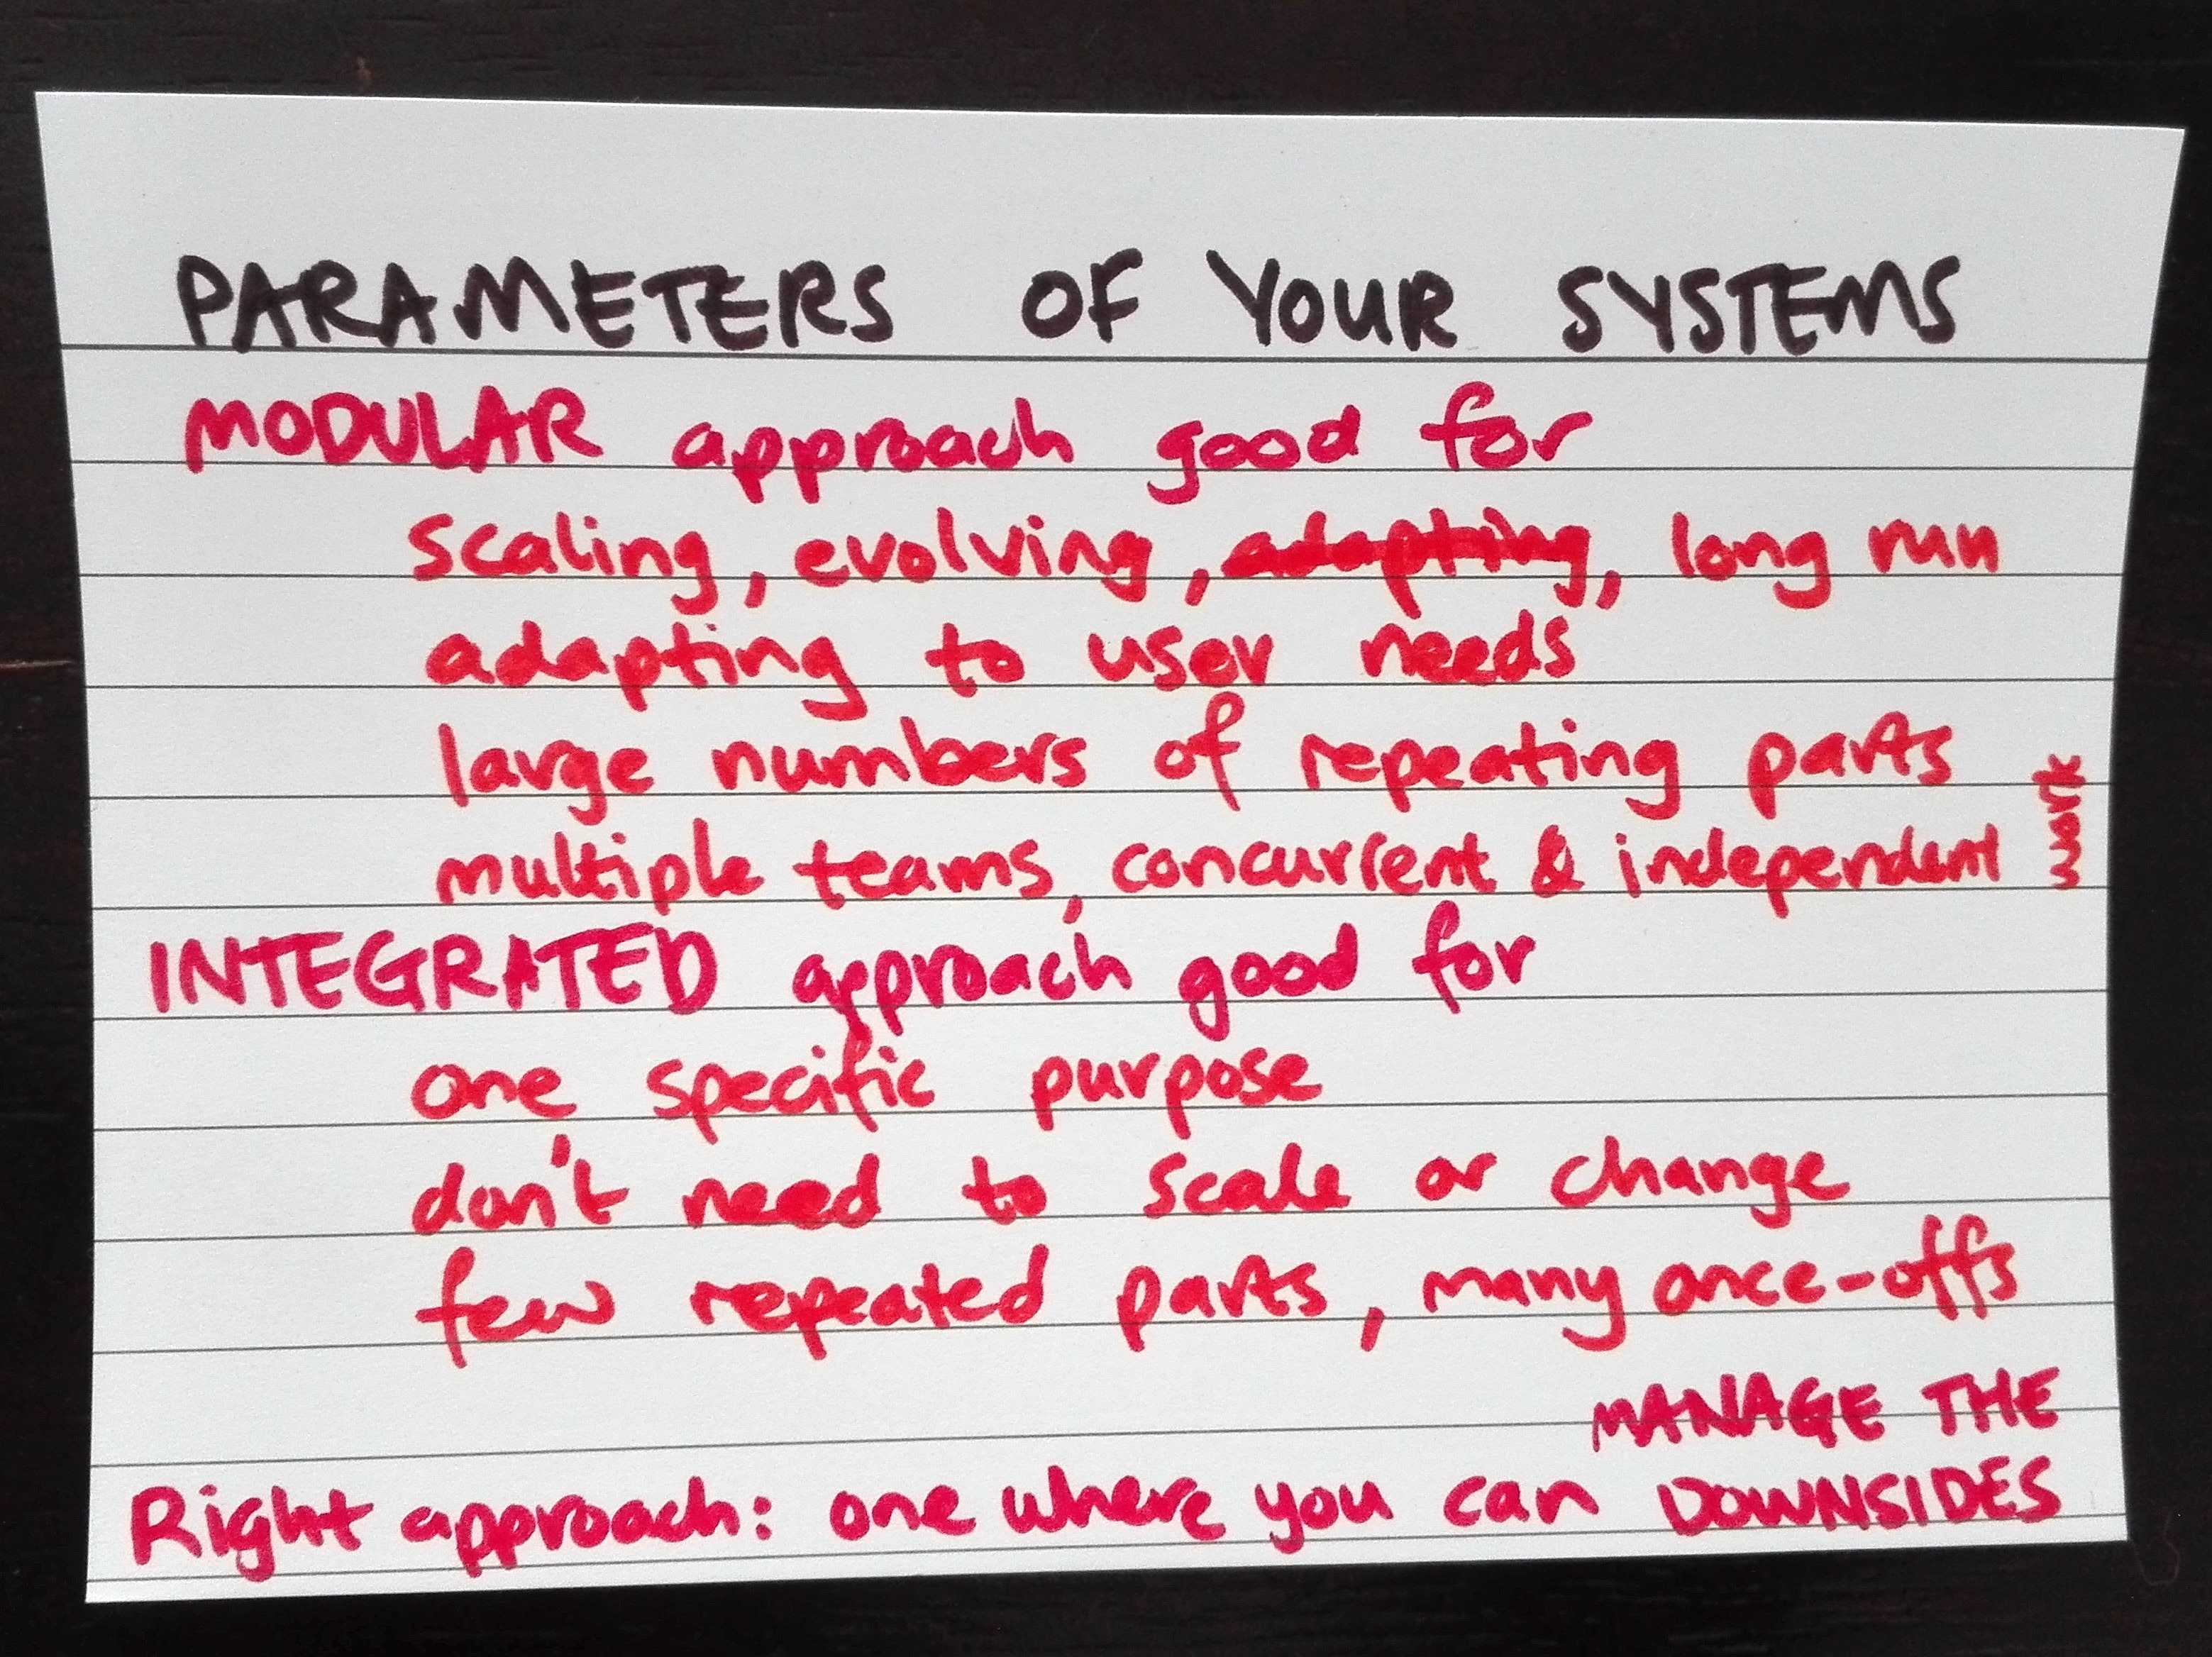 PARAMETERS OF YOUR SYSTEMS
MODULAR approach good for
scaling, evolving, adapting, long run
adapting to user needs
large numbers of repeating parts
multiple teams, concurrent & independent work
INTEGRATED approach good for
one specific purpose
don't need to scale or change
few repeated parts, many once-offs
Right approach: one where you can MANAGE THE
DOWNSIDES